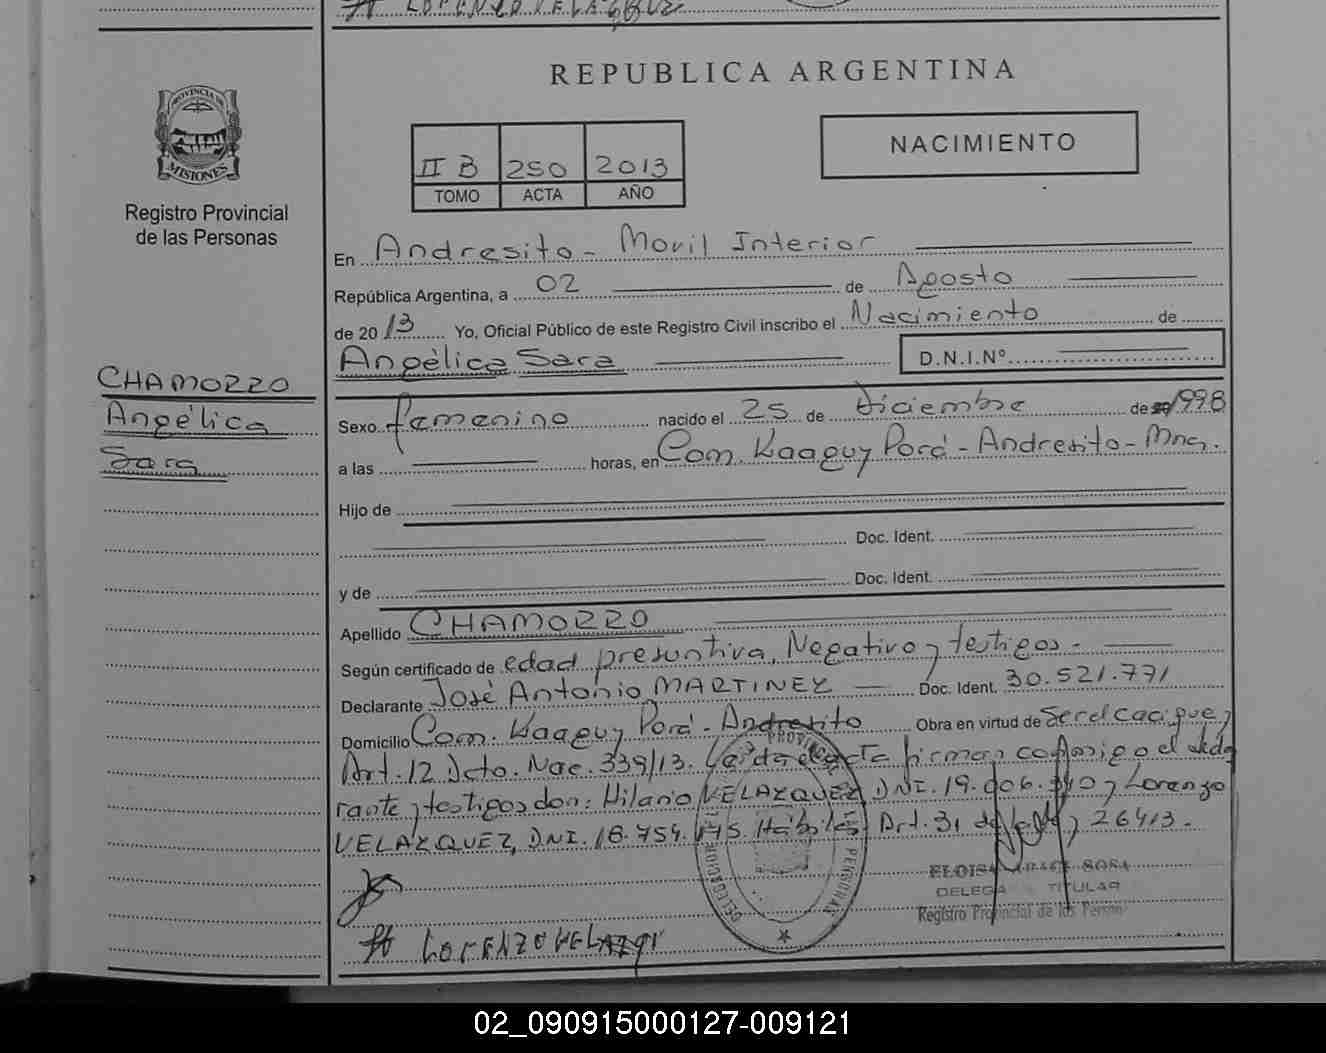 LORENZO VELAZQUEZ
PROVINCIA DE
MISIONES
Registro Provincial
de las Personas
CHAMORRO
Angélica
Sara
REPUBLICA ARGENTINA
II B 250 2013
TOMO ACTA AÑO
NACIMIENTO
En Andresito - Movil Interior
República Argentina, a 02 de Agosto
de 2013 Yo, Oficial Público de este Registro Civil inscribo el Nacimiento de
Angélica Sara D.N.I.Nº
Sexo femenino nacido el 25 de Diciembre de 1998
a las horas, en Com. Kaaguy Porá - Andresito - Mnes.
Hijo de
Doc. Ident.
y de Doc. Ident.
Apellido CHAMORRO
Según certificado de edad presuntiva, Negativo y testigos -
Declarante José Antonio MARTINEZ Doc. Ident. 30.521.771
Domicilio Com. Kaaguy Porá - Andresito Obra en virtud de Ser el cacique y
Art. 12 Dcto. Nac. 339/13. Leída el acta firman conmigo el decla
rante y testigos don: Hilario VELAZQUEZ, DNI. 19.006. y Lorenzo
VELAZQUEZ, DNI. 18.754. Hábiles Art. 31 de Ley 26413.
ELOISA SOSA
DELEGA TITULAR
Registro Provincial de las Person
DELEGACION PROVINCIA DE PERSONAS
LORENZO VELAZQ
02_090915000127-009121